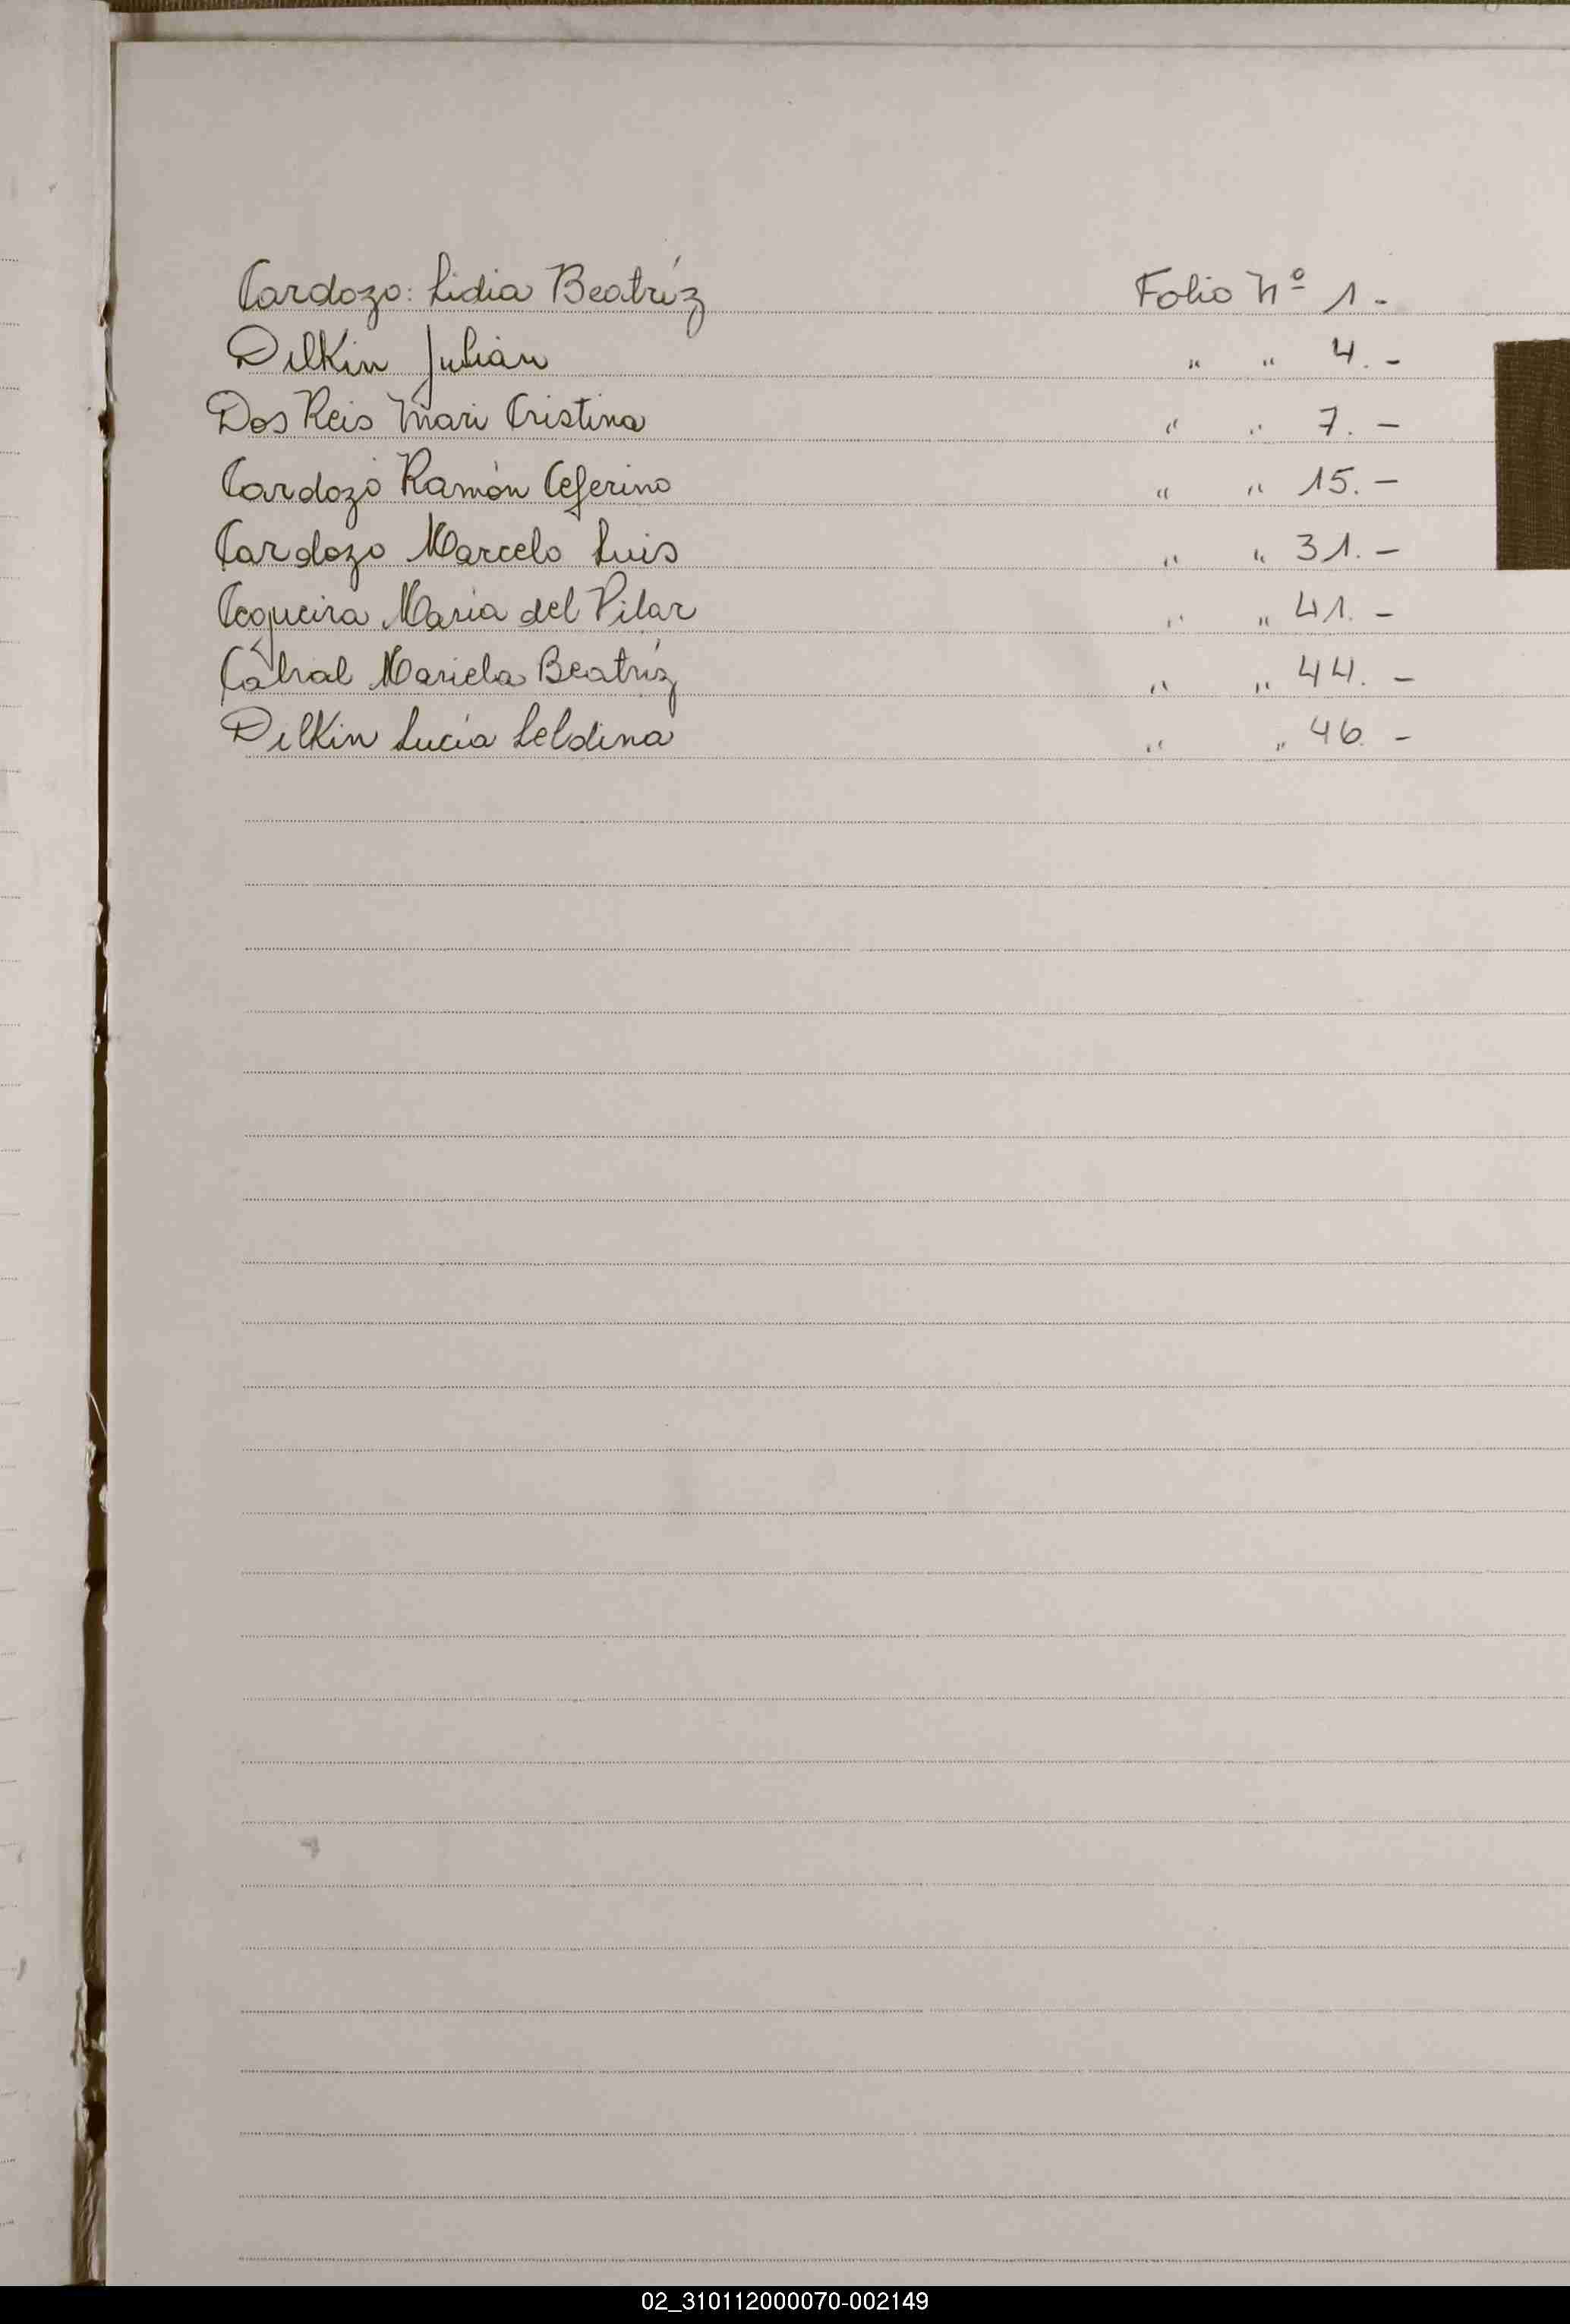 Cardozo: Lidia Beatríz Folio Nº 1.-
Dilkin Julián " " 4.-
Dos Reis Mari Cristina " " 7.-
Cardozo Ramón Ceferino " " 15.-
Cardozo Marcelo Luis " " 31.-
Cequeira Maria del Pilar " " 41.-
Cabral Mariela Beatríz " " 44.-
Dilkin Lucía Leldina " " 46.-
02_310112000070-002149